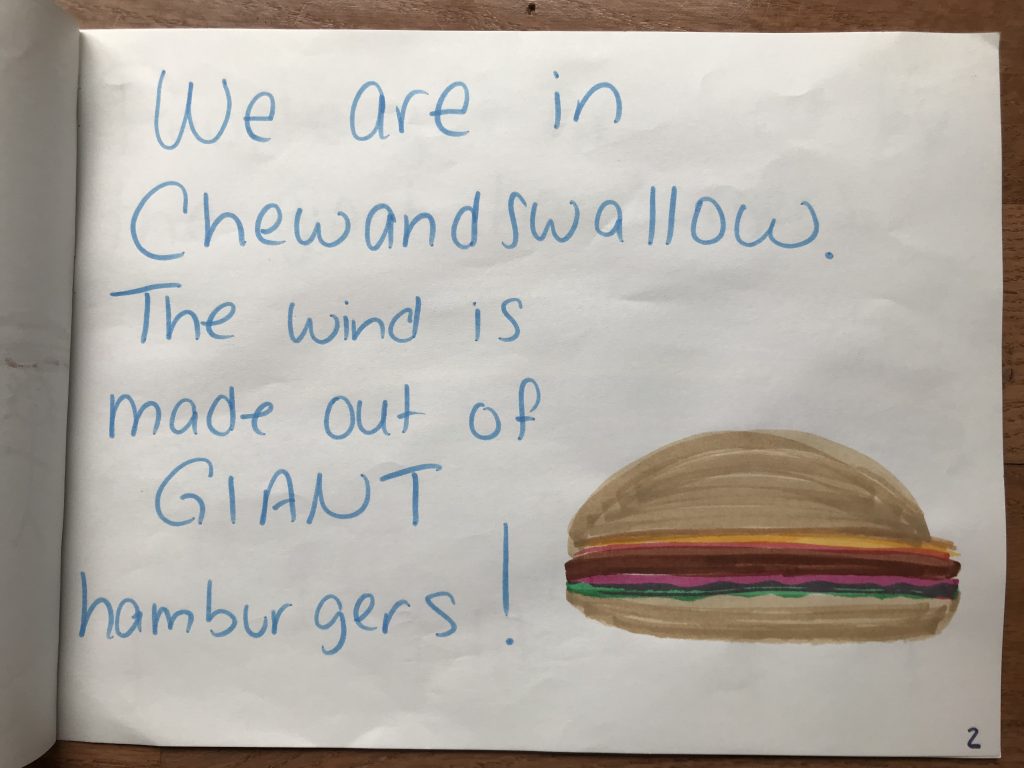 We are in
Chewandswallow.
The wind is
made out of
GIANT
hamburgers!
2